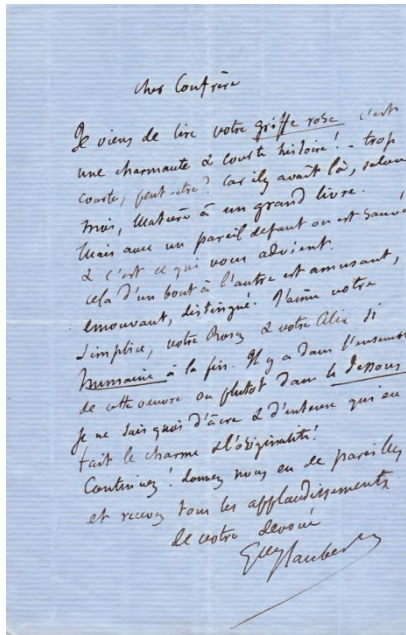 Cher Confrère
Je viens de lire votre griffe rose c'est
une charmante & courte histoire! - trop
courte, peut-être? car il y avait là, selon
moi, matière à un grand livre.
Mais avec un pareil défaut on est sauvé
& c'est ce qui vous advient.
cela d'un bout à l'autre est amusant,
émouvant, distingué. J'aime votre
Simplice, votre Rosey & votre Alix si
humaine à la fin. Il y a dans l'ensemble
de cette oeuvre ou plutôt dans le dessous
je ne sais quoi d'âcre & d'intense qui en
fait le charme & l'originalité!
Continuez! donnez nous en de pareilles
et recevez tous les applaudissements
de votre dévoué
Gve Flaubert